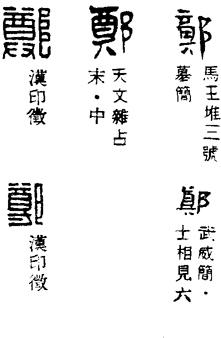 鄭
馬王堆三號
墓簡
鄭
天文雜占
末·中
鄭
漢印徵
鄭
武威簡·
士相見六
鄭
漢印徵